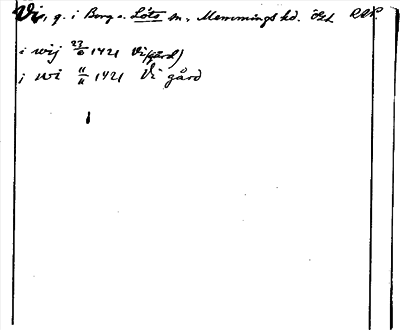 Vi, g. i Borg o. Löts sn, Memmings hd. Ögl. RAP.
i wij 23/6 1421 Vi (gård)
j wi 11/11 1421 Vi gård